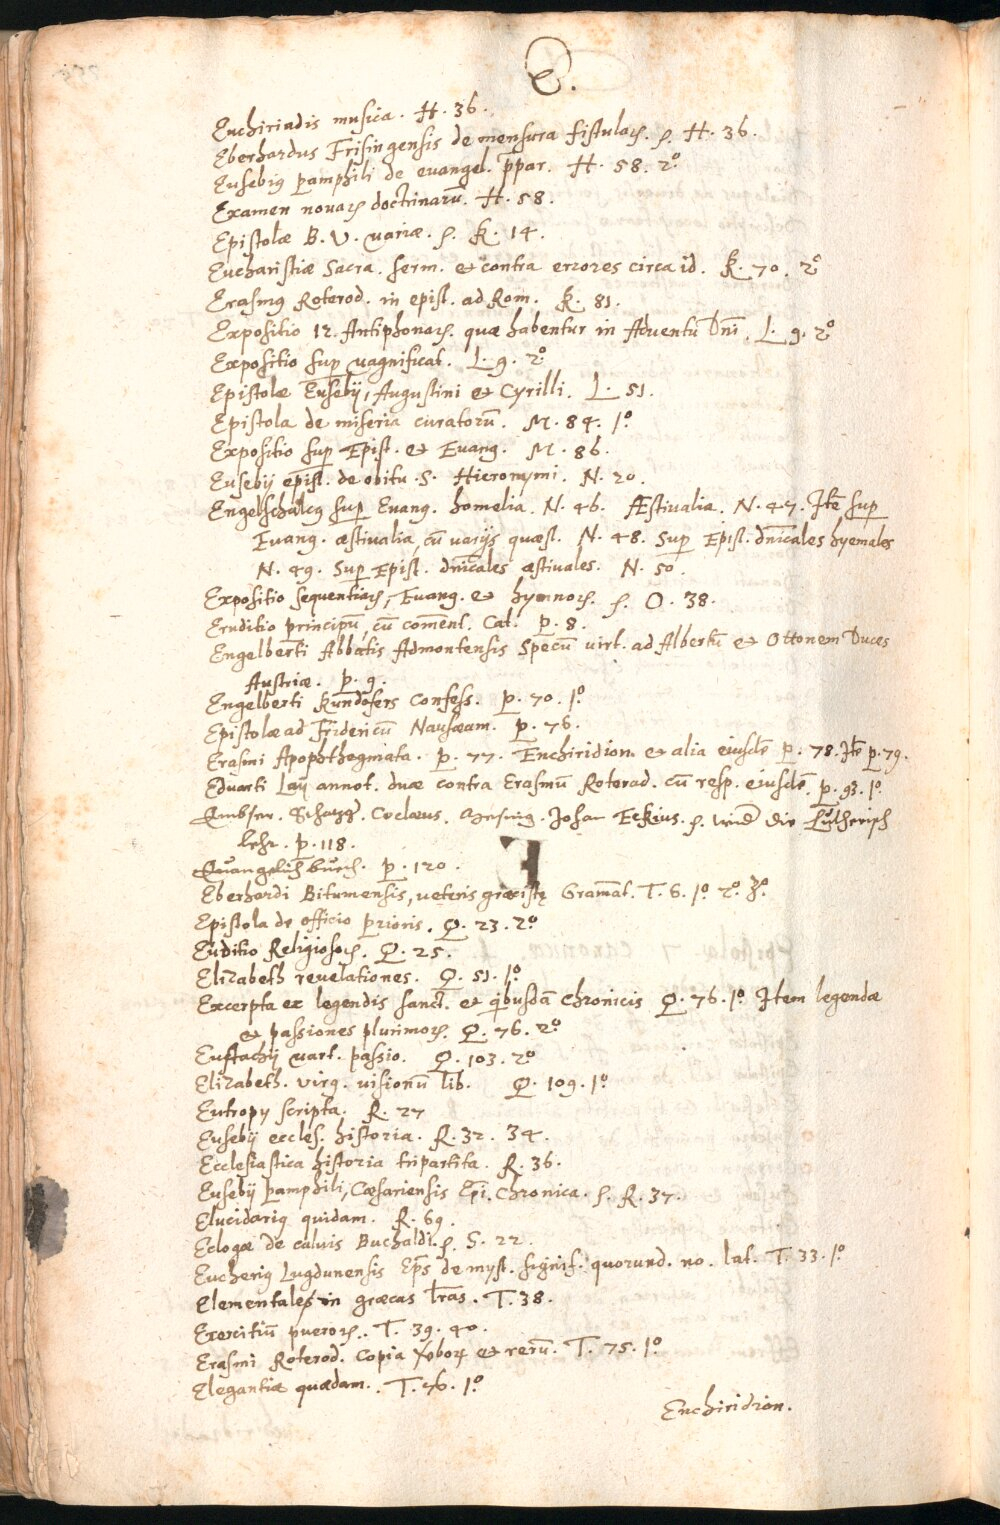 E.
Enchiriadis musica. H. 36.
Eberhardus Frisingensis de mensura fistulaꝝ. ꝭ. H. 36.
Eusebiꝰ pamphili de euangel. p̄par. H. 58. 2º
Examen nouaꝝ doctrinarū. H. 58.
Epistolæ B. V. variæ. ꝭ. K. 14.
Eucharistiæ Sacra. serm. et contra errores circa id. K. 70. 2º
Erasmꝰ Roterod. in epist. ad Rom. K. 81.
Expositio 12. Antiphonaꝝ. quæ habentur in Aduentu Dn̄i. L. 9. 2º
Expositio sup̱ magnificat. L. 9. 2º
Epistolæ Eusebij, Augustini et Cyrilli. L. 51.
Epistola de miseria curatorū. M. 84. 1º
Expositio sup̱ Epist. et Euang. M. 86.
Eusebij epist. de obitu S. Hieronymi. N. 20.
Engelschalcꝰ sup̱ Euang. homelia. N. 46. Æstiualia. N. 47. Itē sup̱
Euang. æstiualia, cū varijs quæst. N. 48. Sup̱ Epist. dn̄icales hyemales
N. 49. Sup̱ Epist. dn̄icales æstiuales. N. 50.
Expositio sequentiaꝝ, Euang. et hymnoꝝ. ꝭ. O. 38.
Eruditio principū, cū com̄ent. Cat. P. 8.
Engelberti Abbatis Admontensis Specū virt. ad Albertū et Ottonem Duces
Austriæ. P. 9.
Engelberti Kundofers Confess. P. 70. 1º
Epistolæ ad Fridericū Nauseam. P. 76.
Erasmi Apophthegmata. P. 77. Enchiridion et alia eiusdē P. 78. Itē P. 79.
Eduarti Laij annot. duæ contra Erasmū Roterod. cū resp. eiusdē. P. 93. 1º
Embser. Schatzg. Coclæus. Johan Eckius. ꝭ. wider die Lutherisch
lehr. P. 118.
Euangelisch buech. P. 120.
Eberhardi Bitumensis, veteris græcistę Gramāt. T. 6. 1º 2º 3º
Epistola de officio prioris. Q. 23. 2º
Euditio Religiosoꝝ. Q. 25.
Elizabeth reuelationes. Q. 51. 1º
Excerpta ex legendis sanct. et q̇busdā chronicis Q. 76. 1º Item legendæ
et passiones plurimoꝝ. Q. 76. 2º
Eustachij mart. passio. Q. 103. 2º
Elizabeth. virg. uisionū lib. Q. 109. 1º
Eutropy scripta. R. 27
Eusebij eccles. historia. R. 32. 34.
Ecclesiastica historia tripartita. R. 36.
Eusebij Pamphili, Cæsariensis Ep̄i. Chronica. ꝭ. R. 37.
Elucidariꝰ quidam. R. 69.
Eclogæ de caluis Buchaldi. ꝭ. S. 22.
Eucheriꝰ Lugdunensis Ep̄s de myst. signif. quorund. no. lat. T. 33. 1º
Elementales in græcas lr̄as. T. 38.
Exercitiū pueroꝝ. T. 39. 40.
Erasmi Roterod. copia v̓boꝝ et rerū. T. 75. 1º
Elegantiæ quædam. T. 76. 1º
Enchiridion.